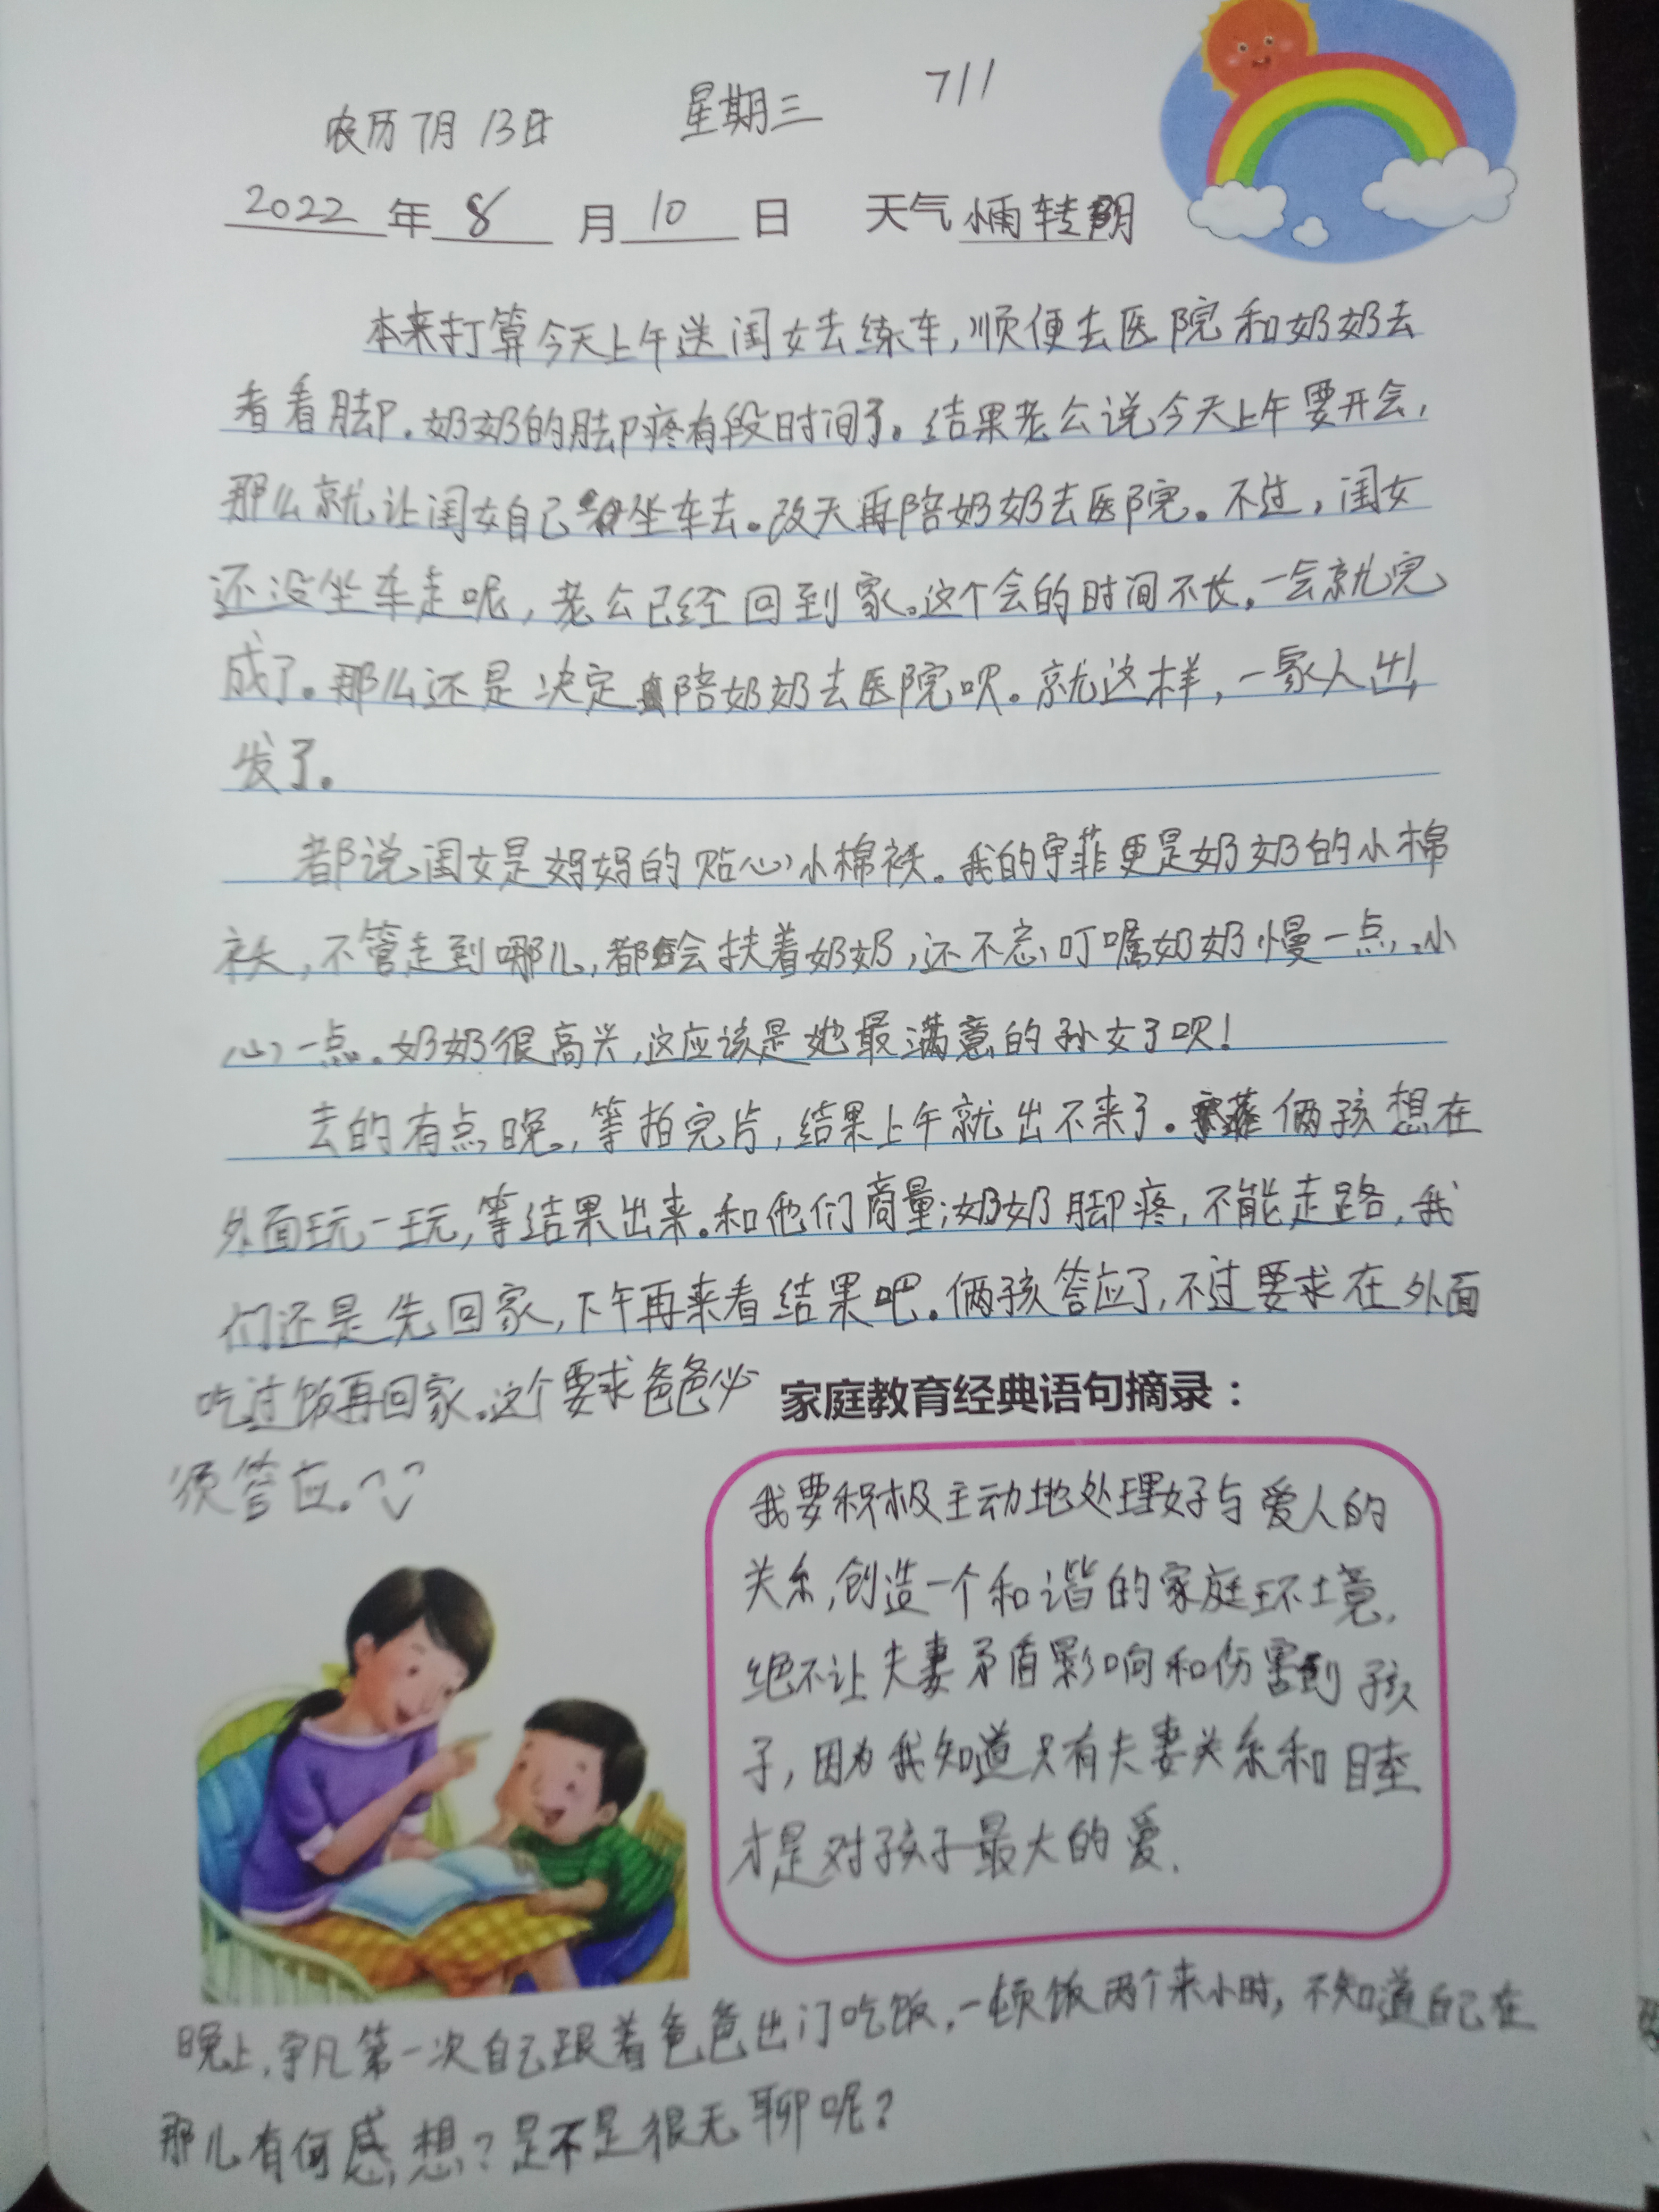 农历7月13日 星期三 711
2022年8月10日 天气 小雨转阴
本来打算今天上午送闺女去练车,顺便去医院和奶奶去
看看脚。奶奶的脚疼有段时间了。结果老公说今天上午要开会,
那么就让闺女自己坐车去。改天再陪奶奶去医院。不过,闺女
还没坐车走呢,老公已经回到家。这个会的时间不长。一会就完
成了。那么还是决定陪奶奶去医院呗。就这样,一家人出
发了。
都说闺女是妈妈的贴心小棉袄。我的宇菲更是奶奶的小棉
袄,不管走到哪儿,都会扶着奶奶,还不忘叮嘱奶奶慢一点,小
心一点。奶奶很高兴,这应该是她最满意的孙女了呗!
去的有点晚,等拍完片,结果上午就出不来了。俩孩想在
外面玩一玩,等结果出来。和他们商量;奶奶脚疼,不能走路,我
们还是先回家,下午再来看结果吧。俩孩答应了,不过要求在外面
吃过饭再回家。这个要求爸爸必
须答应。
家庭教育经典语句摘录:
我要积极主动地处理好与爱人的
关系,创造一个和谐的家庭环境.
绝不让夫妻矛盾影响和伤害到孩
子,因为我知道只有夫妻关系和睦
才是对孩子最大的爱.
晚上,宇凡第一次自己跟着爸爸出门吃饭,一顿饭两个来小时,不知道自己在
那儿有何感想?是不是很无聊呢?